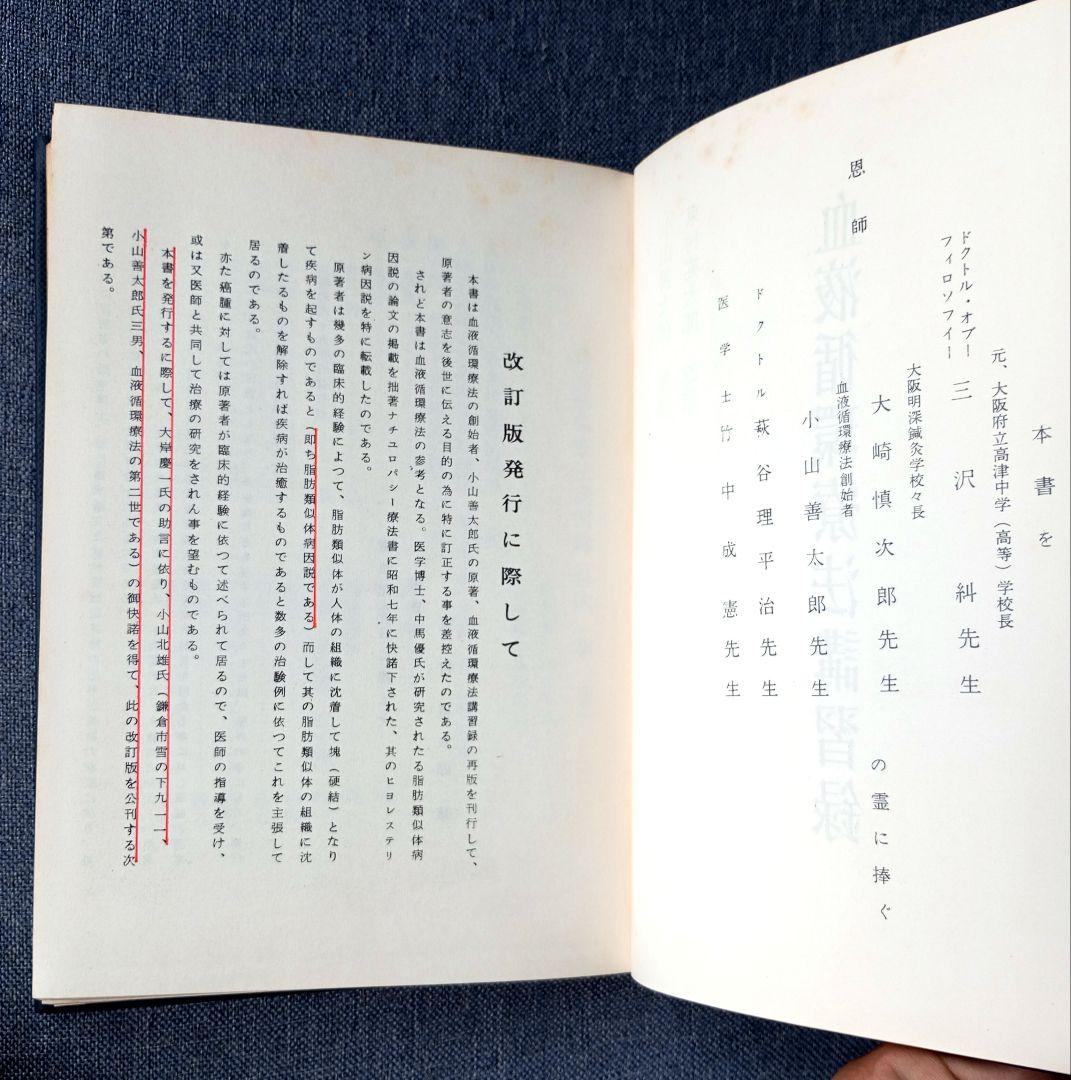 本書を
元、大阪府立高津中学（高等）学校長
ドクトル・オブ・フィロソフイー 三沢糾先生
大阪明深鍼灸学校々長
大崎慎次郎先生 の霊に捧ぐ
血液循環療法創始者
恩師 小山善太郎先生
ドクトル萩谷理平治先生
医学士竹中成憲先生
改訂版発行に際して
本書は血液循環療法の創始者、小山善太郎氏の原著、血液循環療法講習録の再版を刊行して、
原著者の意志を後世に伝える目的の為に特に訂正する事を差控えたのである。
されど本書は血液循環療法の参考となる。医学博士、中馬優氏が研究されたる脂肪類似体病
因説の論文の掲載を拙著ナチュロパシー療法書に昭和七年に快諾下された、其のヒヨレステリ
ン病因説を特に転載したのである。
原著者は幾多の臨床的経験によつて、脂肪類似体が人体の組織に沈着して塊（硬結）となり
て疾病を起すものであると（即ち脂肪類似体病因説である）而して其の脂肪類似体の組織に沈
着したるものを解除すれば疾病が治癒するものであると数多の治験例に依つてこれを主張して
居るのである。
亦た癌腫に対しては原著者が臨床的経験に依つて述べられて居るので、医師の指導を受け、
或は又医師と共同して治療の研究をされん事を望むものである。
本書を発行するに際して、大岸慶一氏の助言に依り、小山北雄氏（鎌倉市雪の下九一一、
小山善太郎氏三男、血液循環療法の第二世である）の御快諾を得て、此の改訂版を公刊する次
第である。